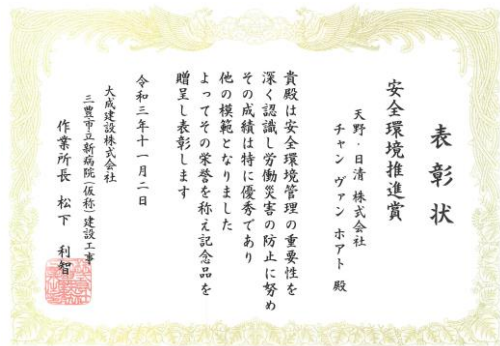 表彰状
安全環境推進賞
天野・日清 株式会社
チャン ヴァン ホアト 殿
貴殿は安全環境管理の重要性を
深く認識し労働災害の防止に努め
その成績は特に優秀であり
他の模範となりました
よってその栄誉を称え記念品を
贈呈し表彰します
令和三年十一月二日
大成建設株式会社
三豊市立新病院(仮称)建設工事
作業所長 松下 利智